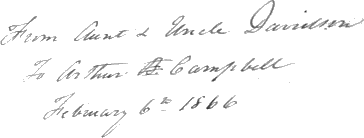 From Aunt & Uncle Davidson
To Arthur Campbell
February 6th 1866